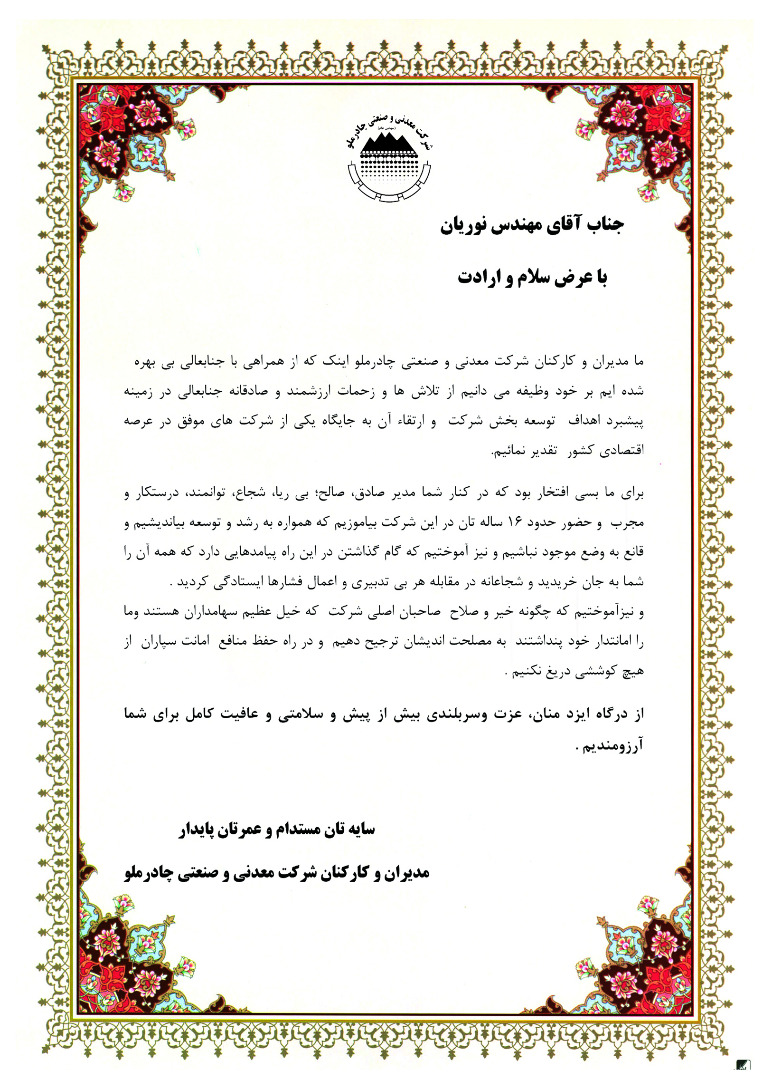 شرکت معدنی و صنعتی چادرملو
(سهامی عام)
جناب آقای مهندس نوریان
با عرض سلام و ارادت
ما مدیران و کارکنان شرکت معدنی و صنعتی چادرملو اینک که از همراهی با جنابعالی بی بهره
شده ایم بر خود وظیفه می دانیم از تلاش ها و زحمات ارزشمند و صادقانه جنابعالی در زمینه
پیشبرد اهداف توسعه بخش شرکت و ارتقاء آن به جایگاه یکی از شرکت های موفق در عرصه
اقتصادی کشور تقدیر نمائیم.
برای ما بسی افتخار بود که در کنار شما مدیر صادق، صالح؛ بی ریا، شجاع، توانمند، درستکار و
مجرب و حضور حدود ۱۶ ساله تان در این شرکت بیاموزیم که همواره به رشد و توسعه بیاندیشیم و
قانع به وضع موجود نباشیم و نیز آموختیم که گام گذاشتن در این راه پیامدهایی دارد که همه آن را
شما به جان خریدید و شجاعانه در مقابله هر بی تدبیری و اعمال فشارها ایستادگی کردید .
و نیزآموختیم که چگونه خیر و صلاح صاحبان اصلی شرکت که خیل عظیم سهامداران هستند وما
را امانتدار خود پنداشتند به مصلحت اندیشان ترجیح دهیم و در راه حفظ منافع امانت سپاران از
هیچ کوششی دریغ نکنیم .
از درگاه ایزد منان، عزت وسربلندی بیش از پیش و سلامتی و عافیت کامل برای شما
آرزومندیم .
سایه تان مستدام و عمرتان پایدار
مدیران و کارکنان شرکت معدنی و صنعتی چادرملو